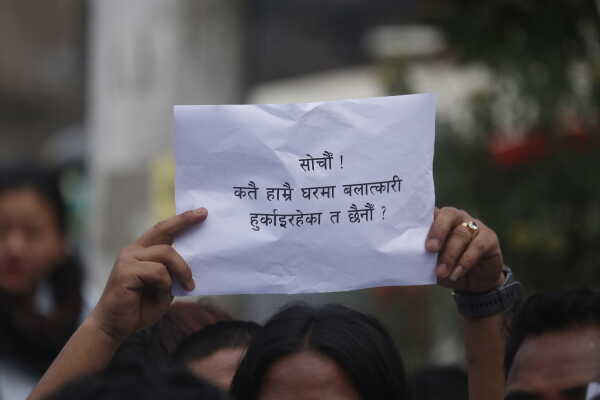 सोचौँ !
कतै हाम्रै घरमा बलात्कारी
हुर्काइरहेका त छैनौँ ?